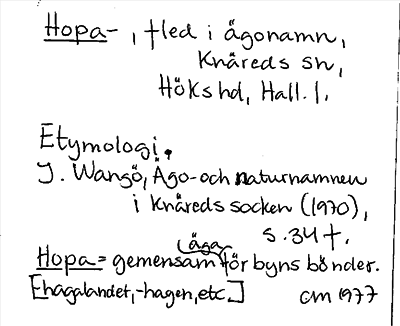 Hopa-, fled i ägonamn,
Knäreds sn,
Höks hd, Hall. l.
Etymologi.
J. Wangö, Ägo- och naturnamnen
i Knäreds socken (1970),
s. 34 f.
äga
Hopa = gemensam för byns bönder.
[-hagalandet, -hagen, etc.]
CM 1977